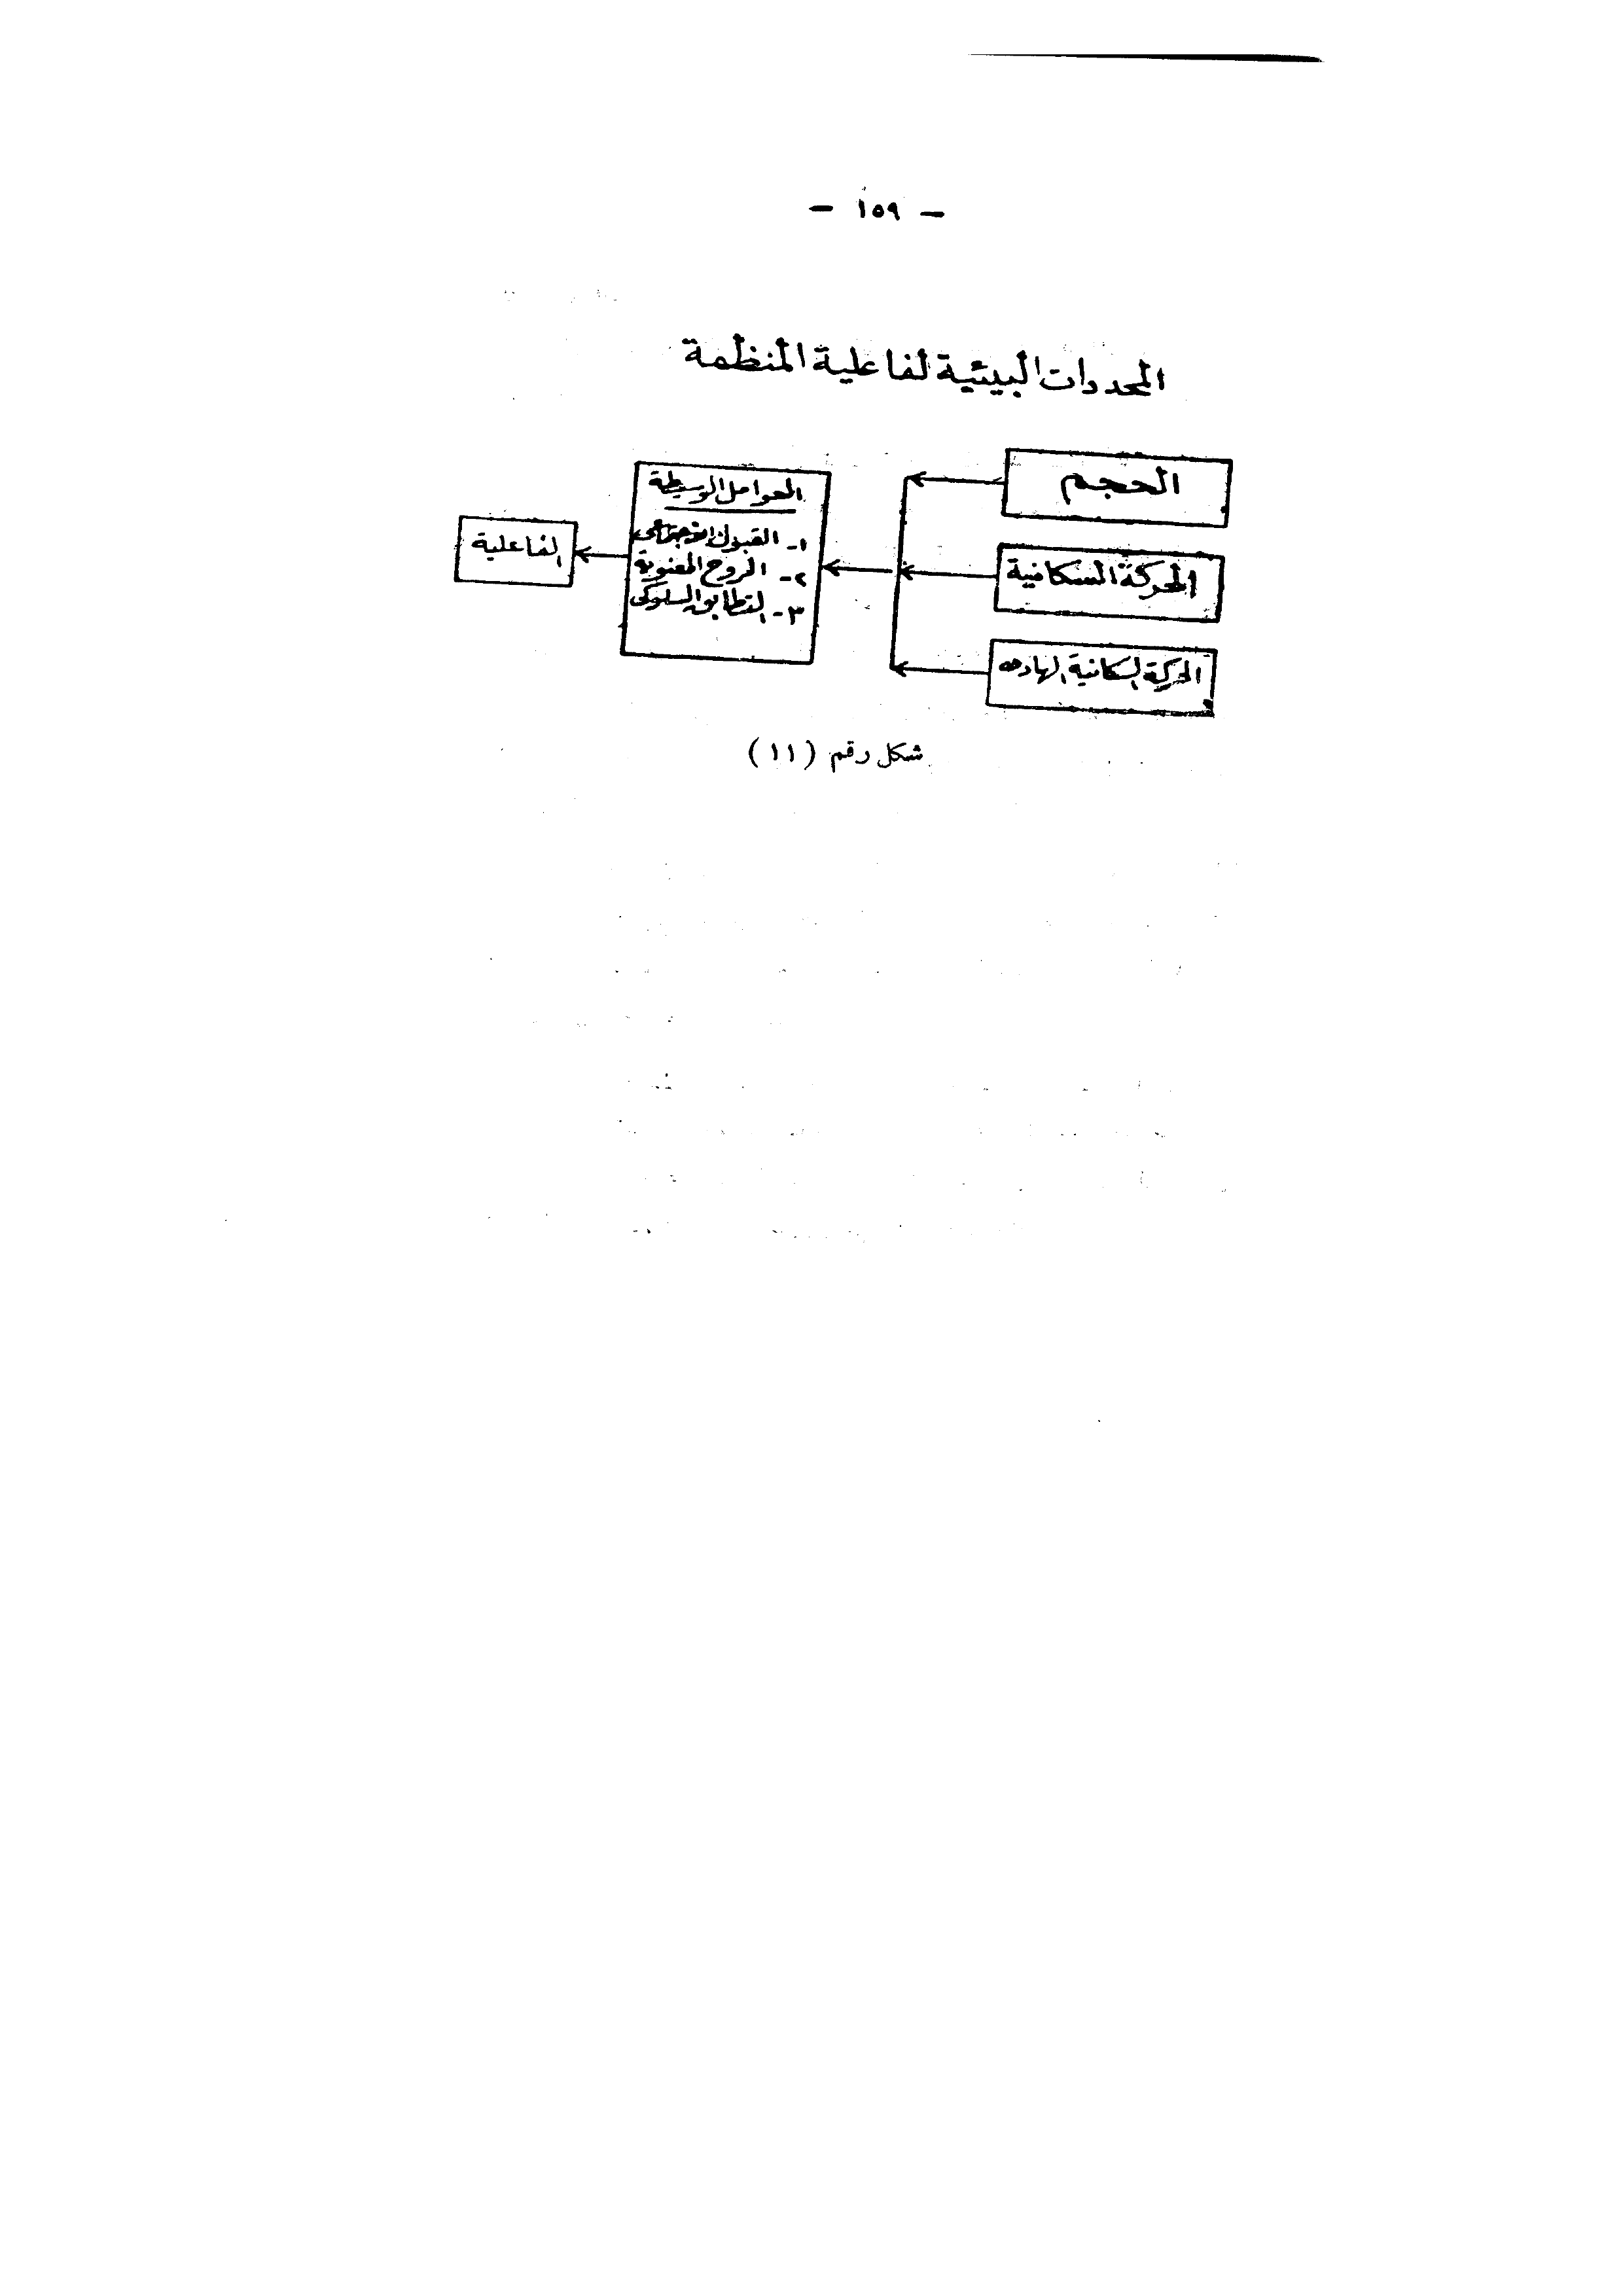 - ١٥٩ -
المحددات البيئية لفاعلية المنظمة
الحجم
الحركة السكانية
الحركة السكانية الهادفه
العوامل الوسيطة
١- القبول الاجتماعى
٢- الروح المعنوية
٣- التطابق السلوكى
الفاعلية
شكل رقم (١١)